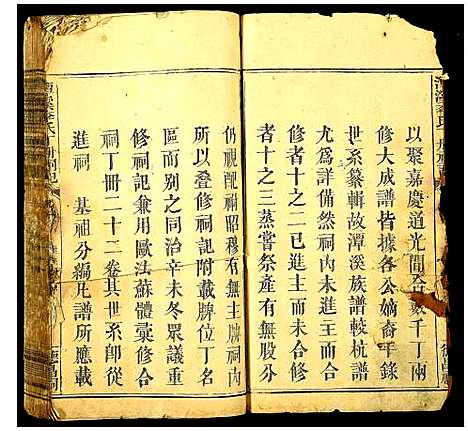 以聚嘉慶道光間合數千丁兩
修大成譜皆據各公嫡裔平錄
世系纂輯故潭溪族譜較杭譜
尤爲詳備然祠内未進主而
世系合修者十之七未合修
者十之三蒸嘗祭產有無股分
仍視配祠昭穆有無主牌祠内
所以叠修祠記附載牌位丁名
區而別之同治辛未冬眾議重
修祠記兼用歐法蘇體彚修合
祠丁冊二十二卷其世系卽從
進祠　基祖分編凡譜所應載